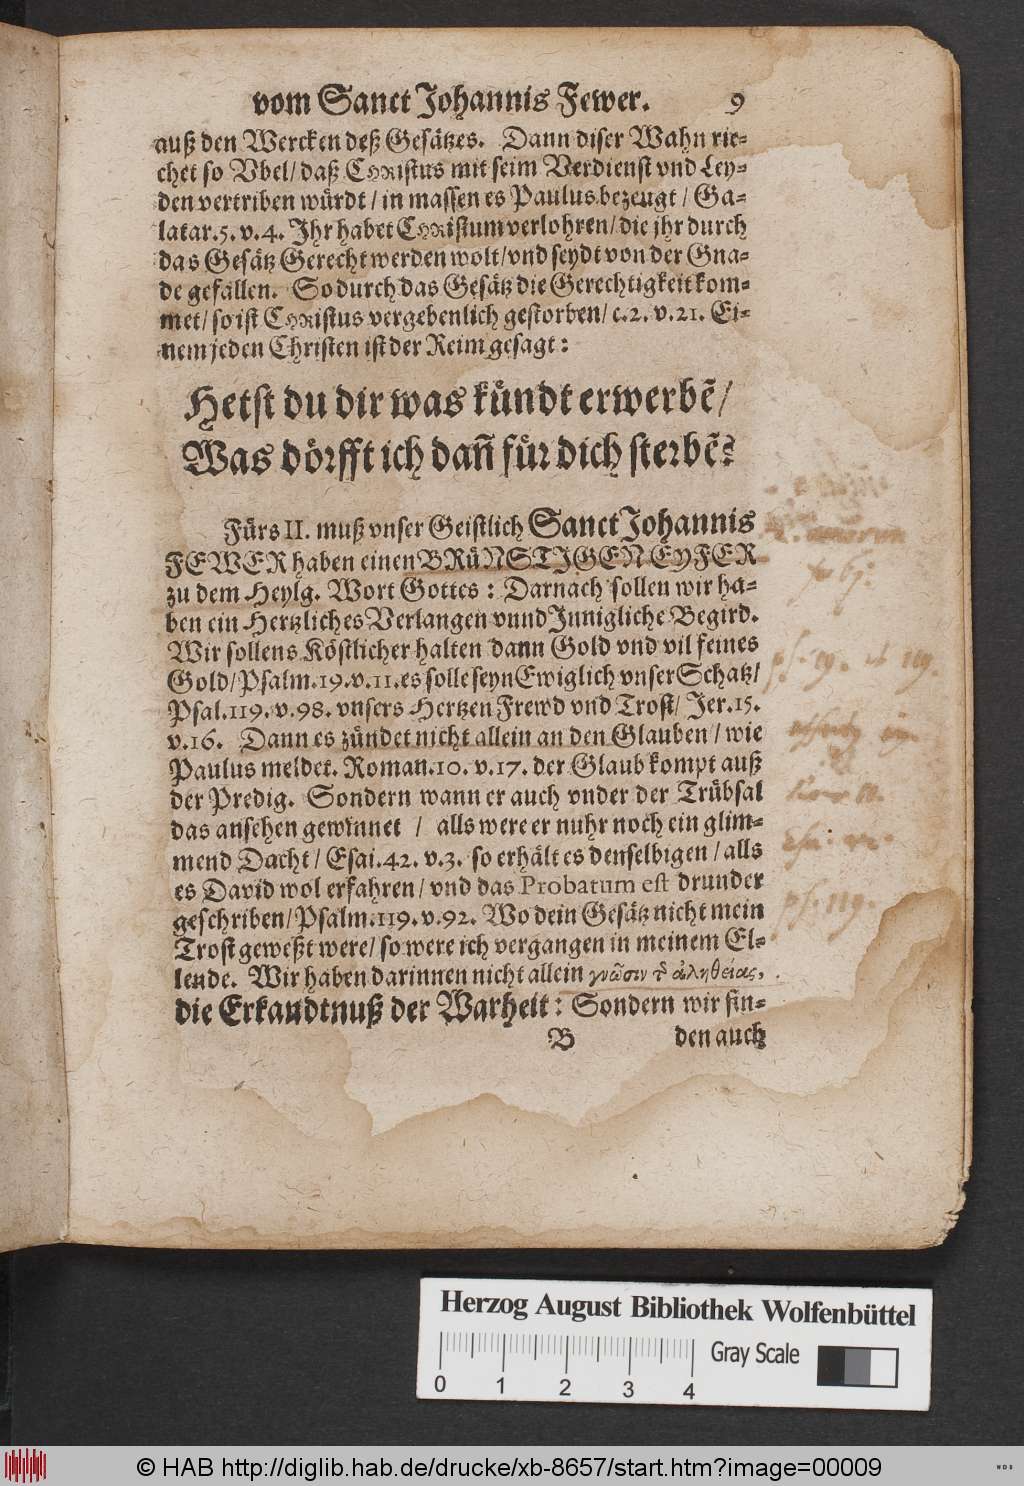 vom Sanct Johannis Fewer. 9
auß den Wercken deß Gesätzes. Dann diser Wahn rie-
chet so Vbel/ daß CHRistus mit seim Verdienst vnd Ley-
den vertriben würdt/ in massen es Paulus bezeugt/ Ga-
latar.5. v.4. Ihr habet CHRistum verlohren/ die jhr durch
das Gesätz Gerecht werden wolt/ vnd seydt von der Gna-
de gefallen. So durch das Gesätz die Gerechtigkeit kom-
met/ so ist CHRistus vergebenlich gestorben/ c.2. v.21. Ei-
nem jeden Christen ist der Reim gesagt:
Hetst du dir was kündt erwerbẽ/
Was dörfft ich dañ für dich sterbẽ?
Fürs II. muß vnser Geistlich Sanct Johannis
FEWER haben einen BRüNSTIGEN EYFER
zu dem Heylg. Wort Gottes: Darnach sollen wir ha-
ben ein Hertzliches Verlangen vnnd Innigliche Begird.
Wir sollens Köstlicher halten dann Gold vnd vil feines
Gold/ Psalm.19.v.11. es solle seyn Ewiglich vnser Schatz/
Psal.119.v.98. vnsers Hertzen Frewd vnd Trost/ Jer.15.
v.16. Dann es zündet nicht allein an den Glauben/ wie
Paulus meldet. Roman.10. v.17. der Glaub kompt auß
der Predig. Sondern wann er auch vnder der Trübsal
das ansehen gewinnet / alls were er nuhr noch ein glim-
mend Dacht/ Esai.42. v.3. so erhält es denselbigen/ alls
es David wol erfahren/ vnd das Probatum est drunder
geschriben/ Psalm.119.v.92. Wo dein Gesätz nicht mein
Trost geweßt were/ so were ich vergangen in meinem El-
lende. Wir haben darinnen nicht allein γνῶσιν τ̃ ἀληθείας,
die Erkandtnuß der Warheit: Sondern wir fin-
B den auch
ps. 19. 119.
ps. 119.
Herzog August Bibliothek Wolfenbüttel
0 1 2 3 4 Gray Scale
© HAB http://diglib.hab.de/drucke/xb-8657/start.htm?image=00009
WDB